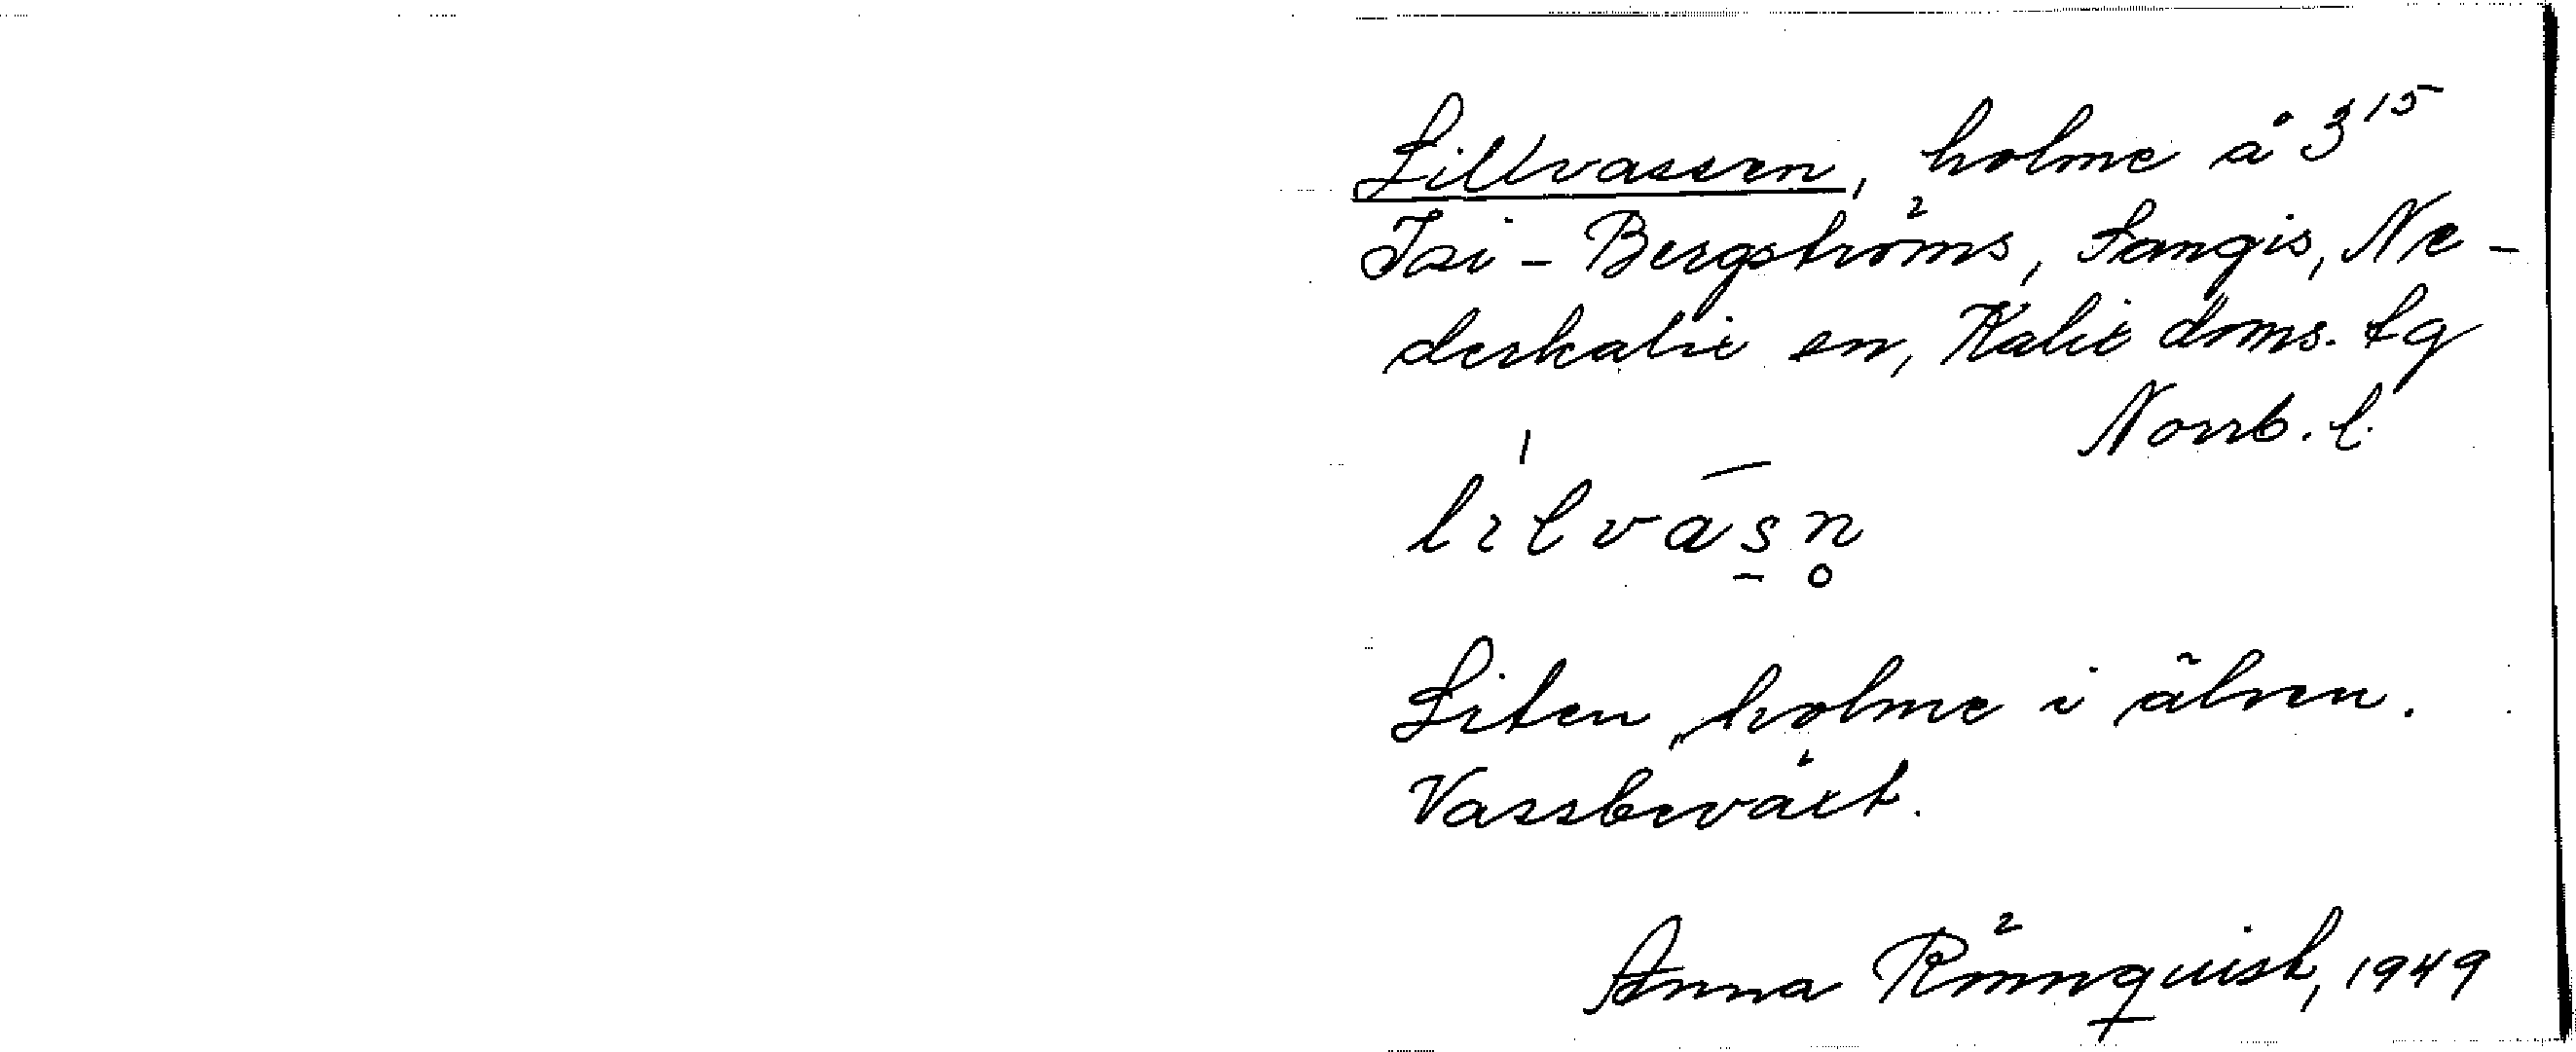 Lillvassen, holme å 3¹⁵
Isi-Bergströms, Sangis, Ne-
derkalix sn, Kalix doms. tg
Norrb. l.
lilvasn̥
Liten holme i älven.
Vassbeväxt.
Anna Rönnquist, 1949